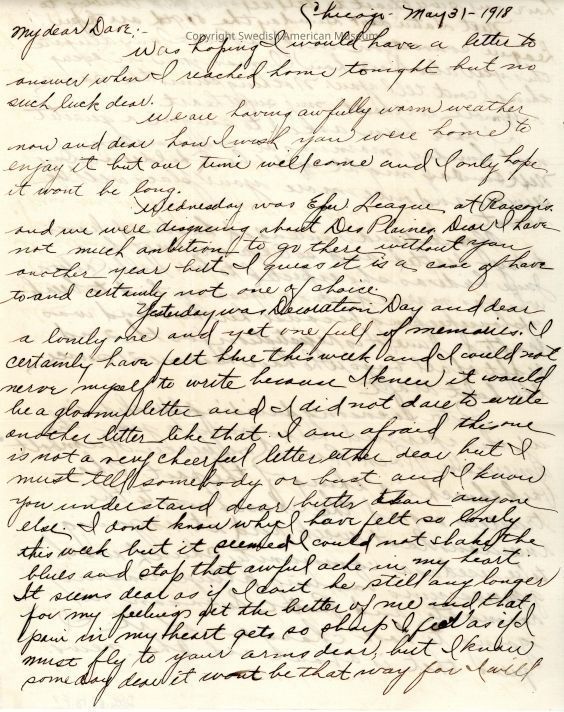 Chicago - May 31 - 1918
Copyright Swedish American Museum
My dear Dave:-
Was hoping I would have a letter to
answer when I reached home tonight but no
such luck dear.
We are having awfully warm weather
now and dear how I wish you were home to
enjoy it but our time will come and I only hope
it wont be long.
Wednesday was Epw. League at
and we were disgncing about Des Plaines. Dear I have
not much ambition to go there without you
another year but I guess it is a case of have
to and certainly not one of choice.
Yesterday was Decoration Day and dear
a lonely one and yet one full of memories. I
certainly have felt blue this week and I could not
nerve myself to write because I knew it would
be a gloomy letter and I did not dare to write
another letter like that. I am afraid this one
is not a very cheerful letter either dear but I
must tell somebody or bust and I know
you understand dear better than anyone
else. I dont know why I have felt so lonely
this week but it seemed I could not shake the
blues and stop that awful ache in my heart.
It seems dear as if I cant be still any longer
for my feelings get the better of me and that
pain in my heart gets so sharp I feel as if I
must fly to your arms dear, but I know
someday dear it wont be that way for I will